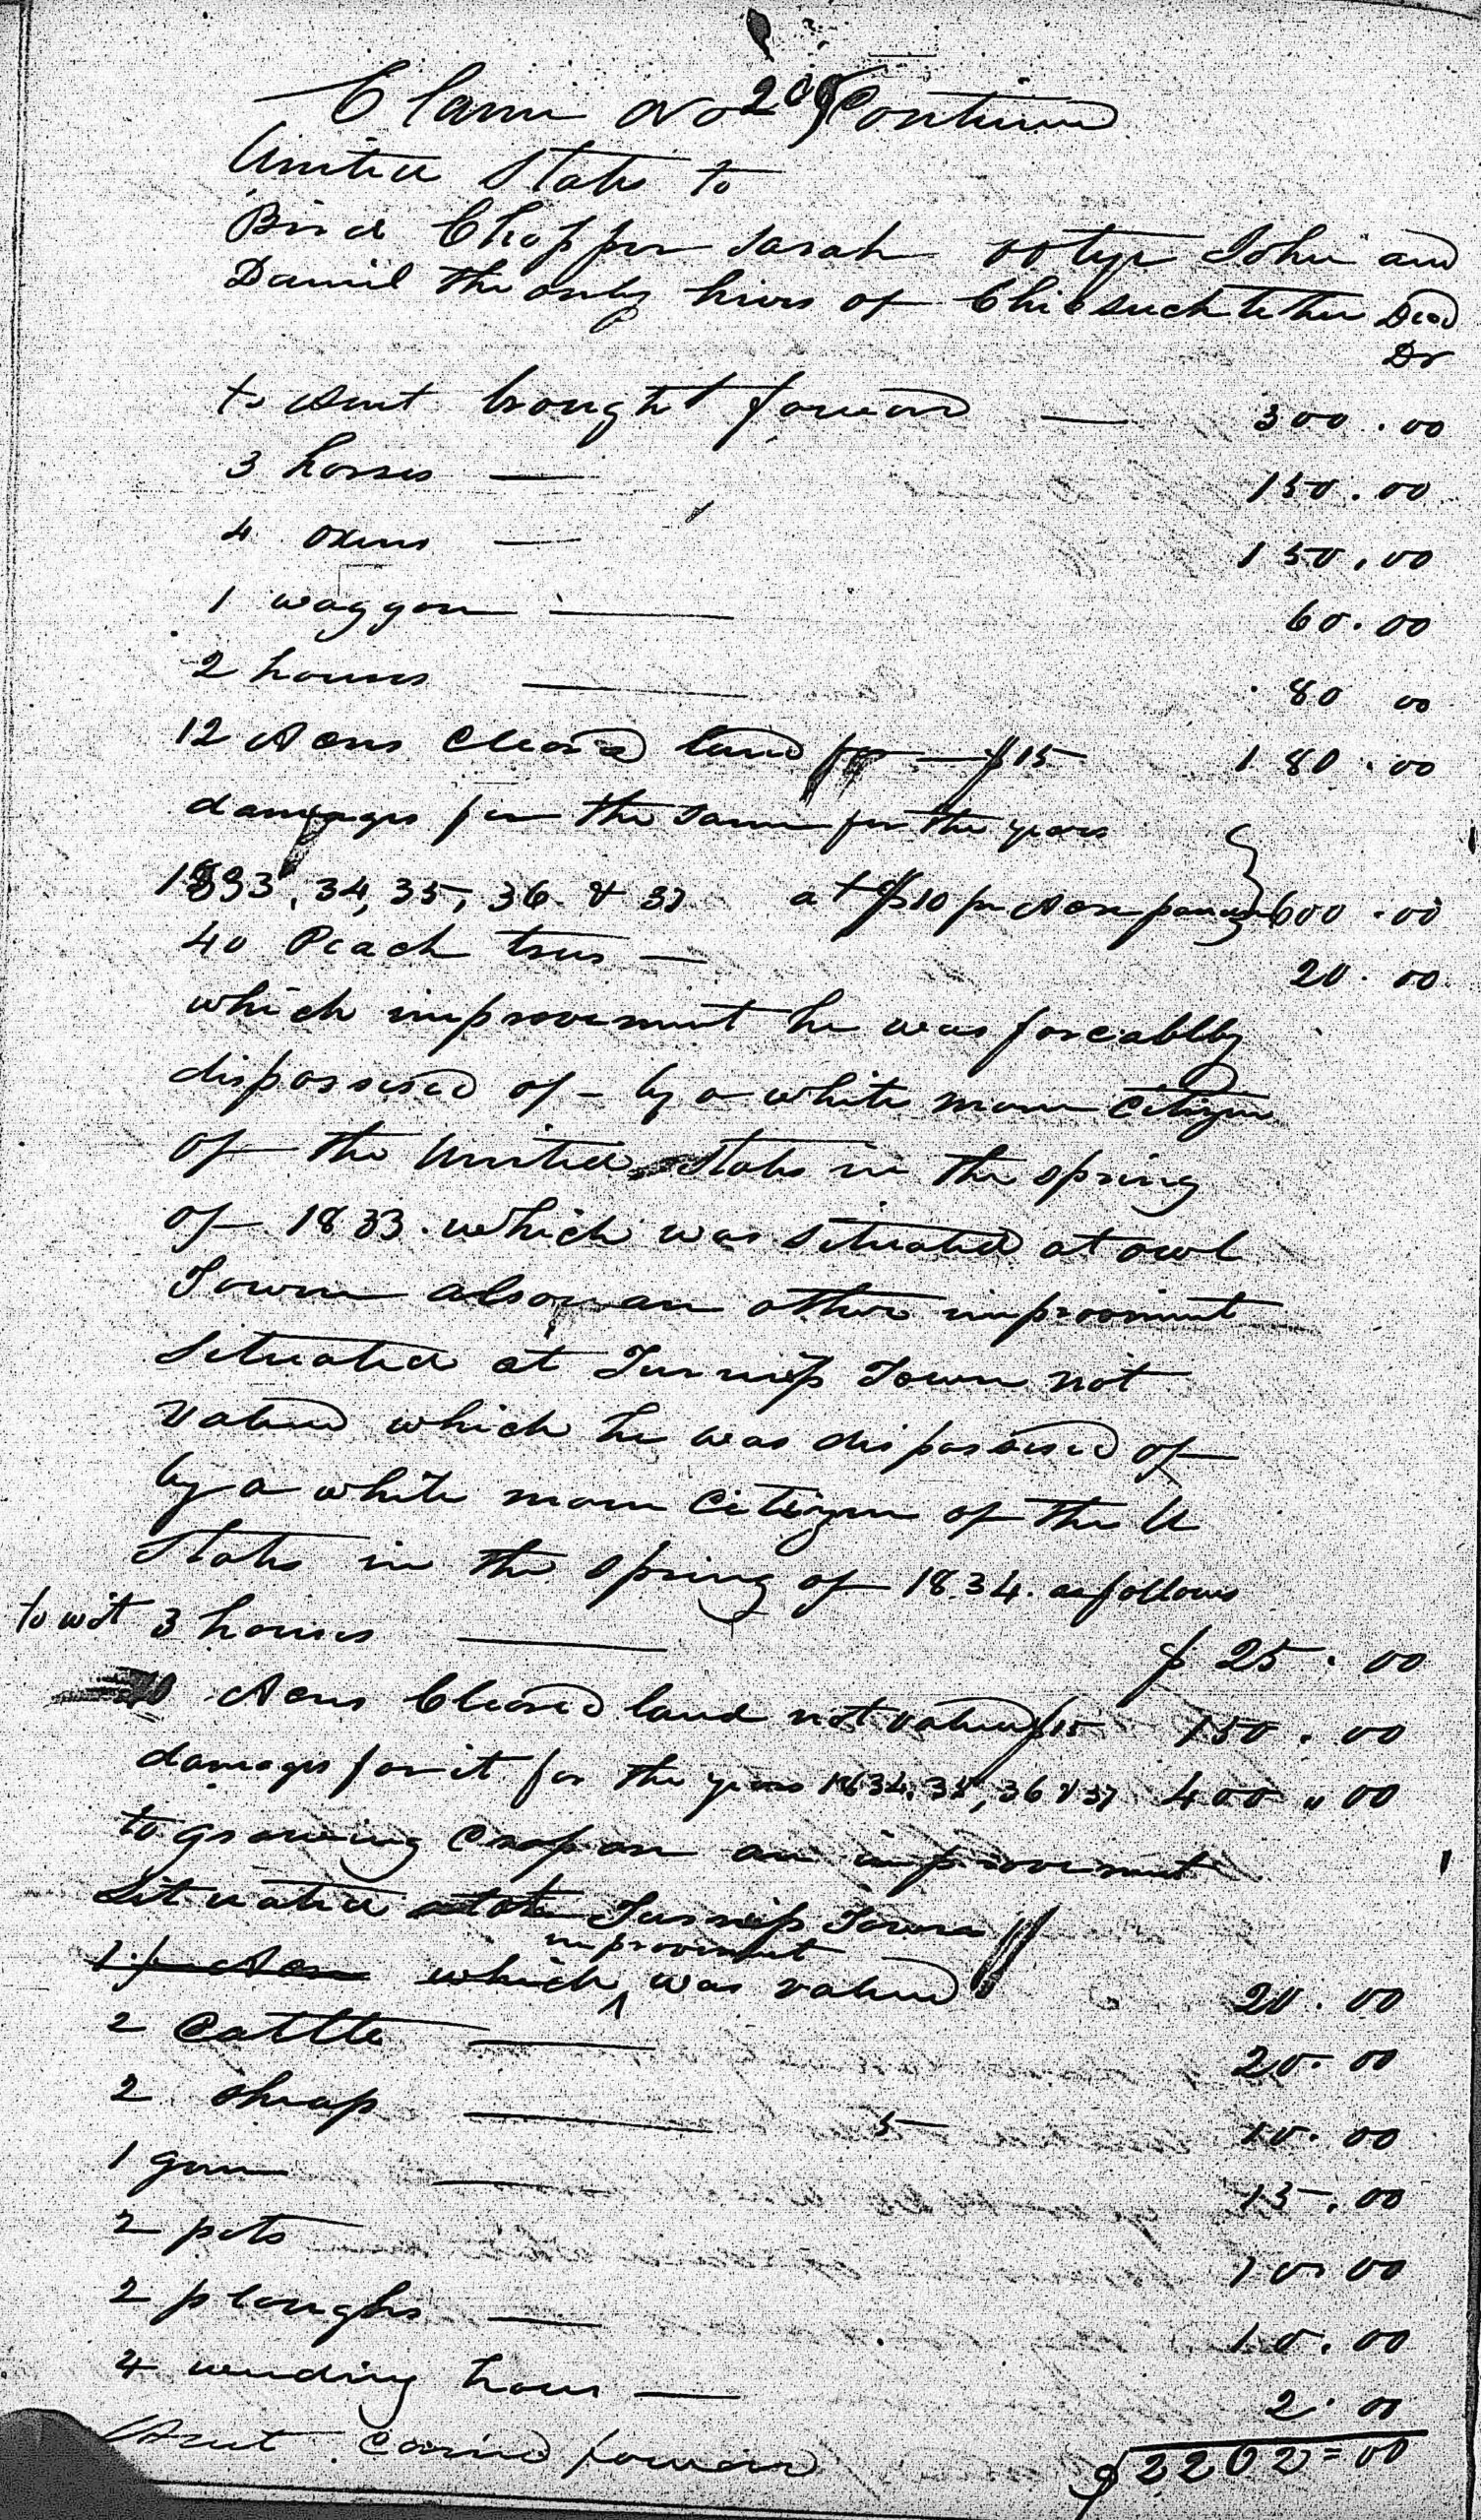 Claim No 209 Continued
United States to
Bird Chopper Sarah John and
Daniel the only heirs of Chicsuchtether Decd
Dr
to Amt brought forward — 300.00
3 horses — 150.00
4 oxens — 150.00
1 waggon — 60.00
2 houses — 80 00
12 Acres cleard land — $15 180.00
damages for the same for the years
1833, 34, 35, 36 & 37 at $10 per Acre 600.00
40 Peach trees — 20.00
which improvement he was forcablly
dispossesed of - by a white man citizen
of the United States in the spring
of 1833. which was situated at owl
Town also an other improvment
situated at Turnip Town not
valued which he was dispossesed of
by a white man Citizen of the U
States in the spring of 1834. as follows
to wit 3 houses — $25.00
10 Acres Cleared land not valued $15 150.00
damages for it for the years 1834, 35, 36 & 37 400.00
to growing Crop on an improvement
Situated Turnip Town
improvment
which was valued 20.00
2 Cattle — 20.00
2 sheap — 5 10.00
1 gun — 15.00
2 pots 10.00
2 ploughs — 10.00
4 weeding hoes — 2.00
Amt Carried forward $2202=00